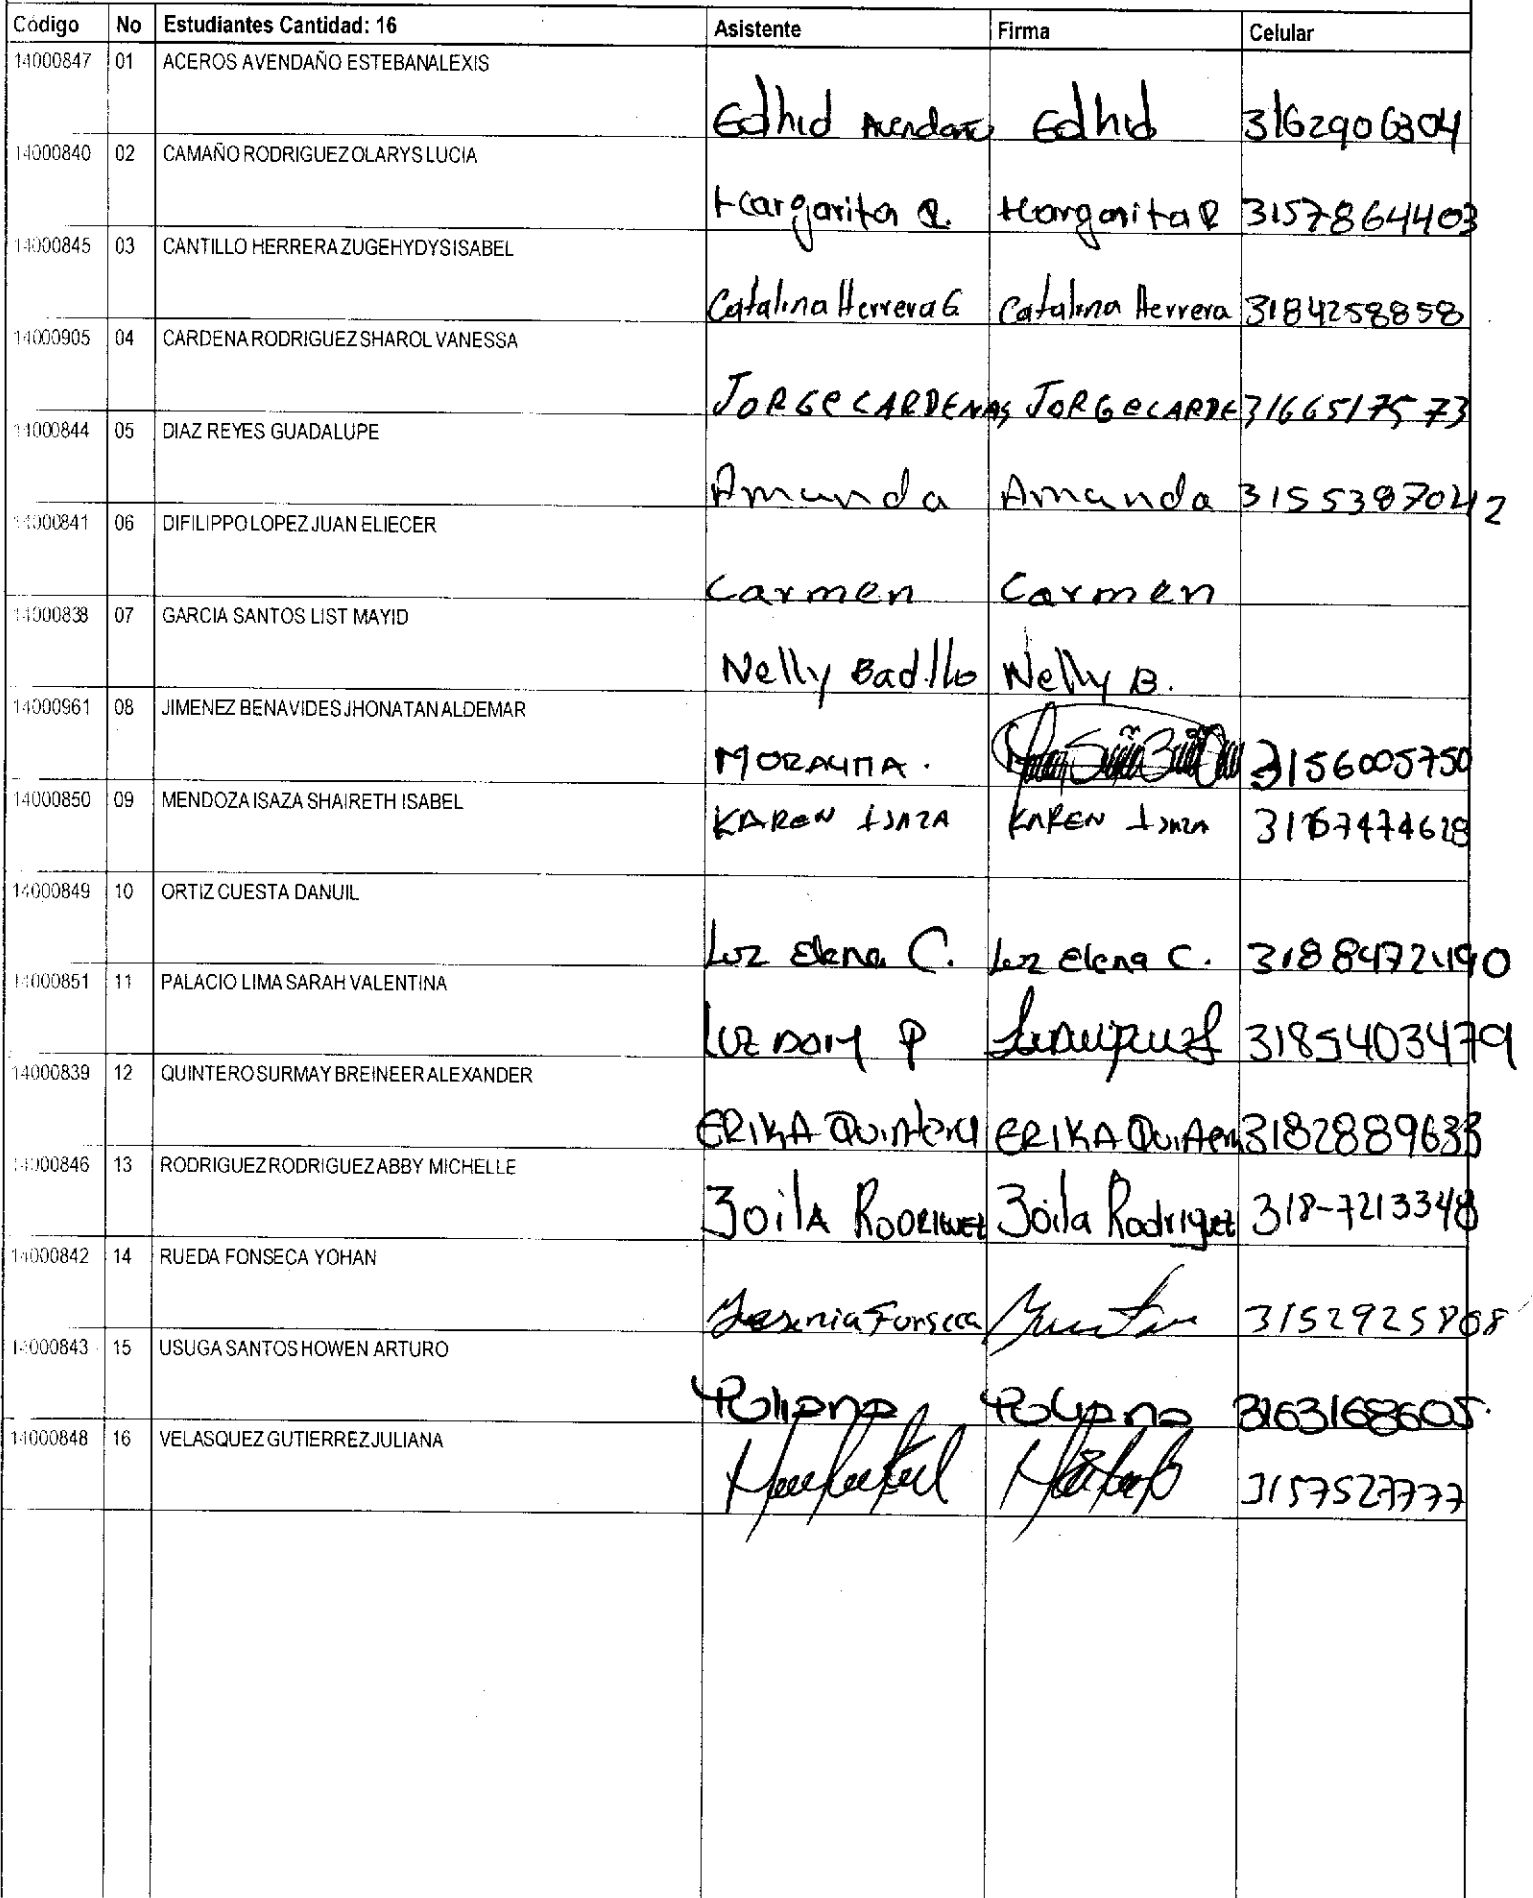 Código No Estudiantes Cantidad: 16 Asistente Firma Celular
14000847 01 ACEROS AVENDAÑO ESTEBAN ALEXIS
Edhid Avendaño Edhid 3162906304
14000840 02 CAMAÑO RODRIGUEZ OLARYS LUCIA
Margarita R. Margarita R 3157864403
14000845 03 CANTILLO HERRERA ZUGEHYDYS ISABEL
Catalina Herrera G. Catalina Herrera 3184258858
14000905 04 CARDENA RODRIGUEZ SHAROL VANESSA
JORGE CARDENAS JORGE CARDE 3166517573
14000844 05 DIAZ REYES GUADALUPE
Amanda Amanda 3155387042
14000841 06 DIFILIPPO LOPEZ JUAN ELIECER
Carmen Carmen
14000838 07 GARCIA SANTOS LIST MAYID
Nelly Badillo Nelly B.
14000961 08 JIMENEZ BENAVIDES JHONATAN ALDEMAR
MORAYMA. 3156005750
14000850 09 MENDOZA ISAZA SHAIRETH ISABEL
KAREN ISAZA KAREN ISAZA
14000849 10 ORTIZ CUESTA DANUIL
Luz Elena C. Luz Elena C.
14000851 11 PALACIO LIMA SARAH VALENTINA
LUZ DARY P 3185403479
14000839 12 QUINTERO SURMAY BREINEER ALEXANDER
ERIKA Quintero ERIKA Quintero 3182889633
14000846 13 RODRIGUEZ RODRIGUEZ ABBY MICHELLE
Zoila RODRIGUEZ Zoila Rodriguez 318-7213348
14000842 14 RUEDA FONSECA YOHAN
Yesenia Fonseca 3152925808
14000843 15 USUGA SANTOS HOWEN ARTURO
Yoliana Yoliana 3163168605.
14000848 16 VELASQUEZ GUTIERREZ JULIANA
3157527777